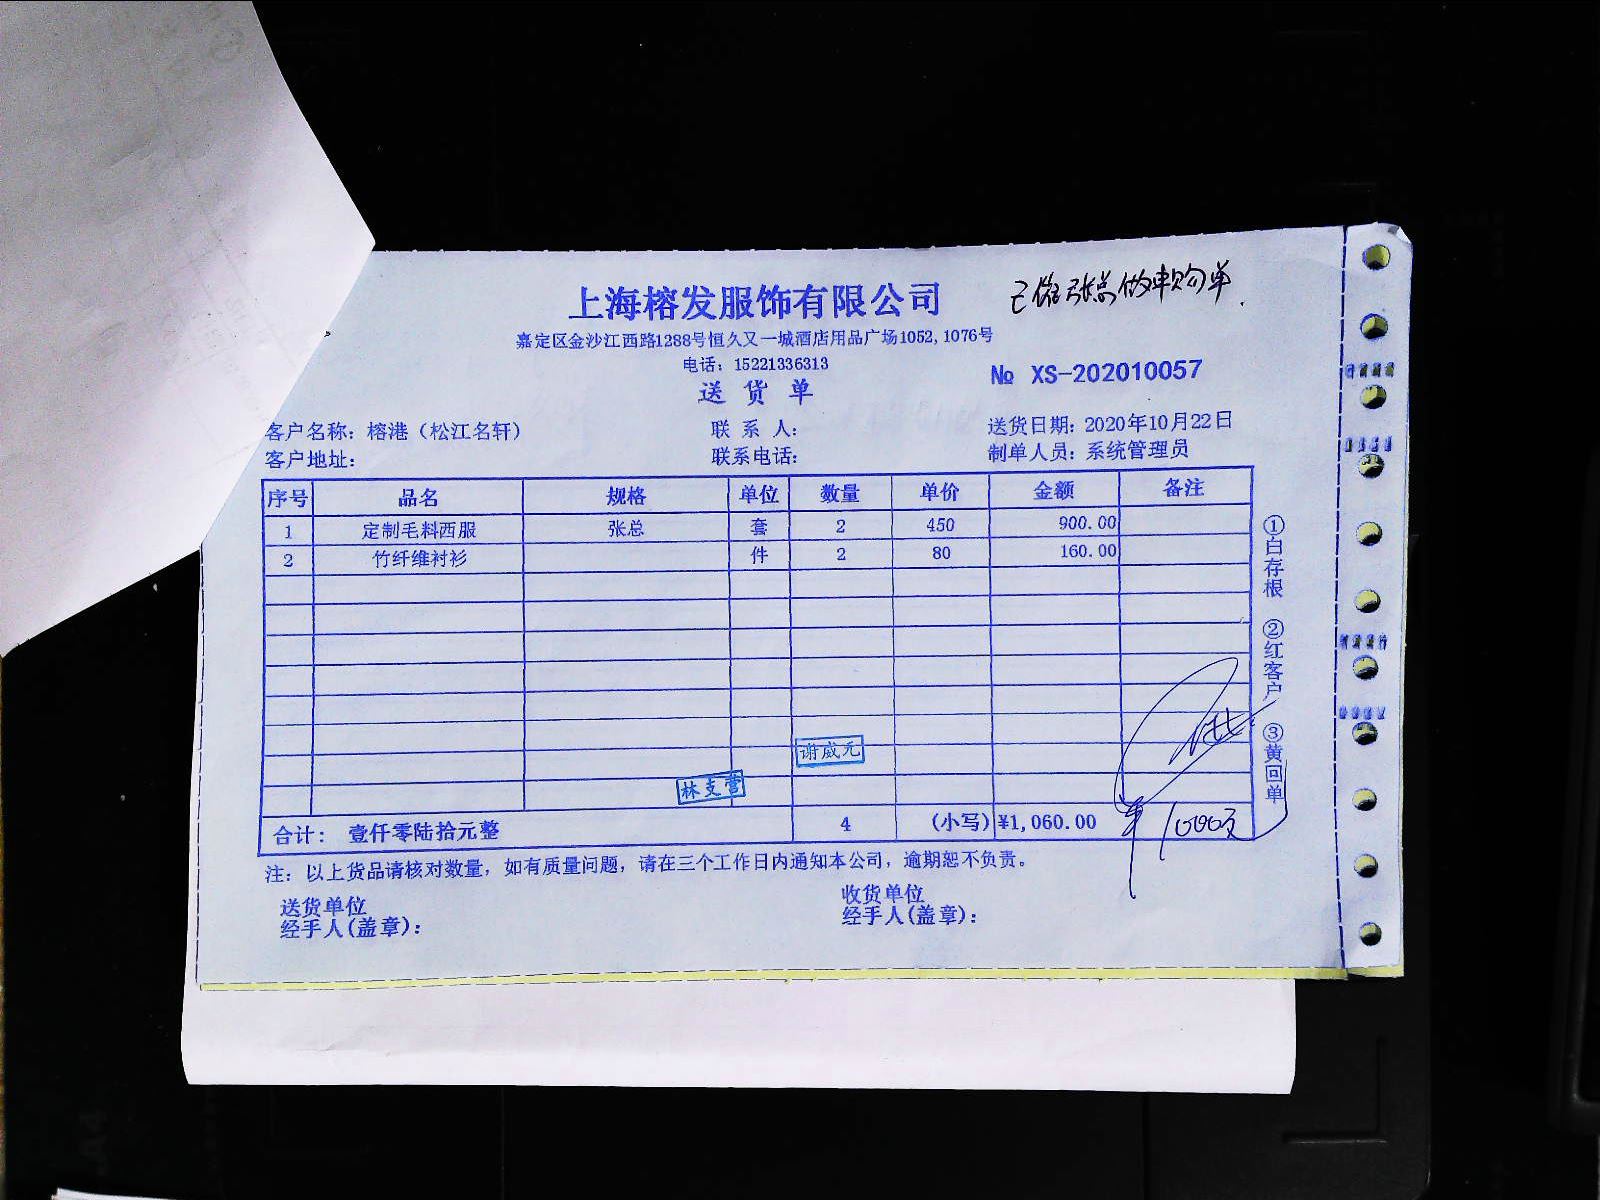 上海榕发服饰有限公司
嘉定区金沙江西路1288号恒久又一城酒店用品广场1052,1076号
电话：15221336313
送 货 单
№ XS-202010057
客户名称：榕港（松江名轩）
联 系 人：
送货日期：2020年10月22日
客户地址：
联系电话：
制单人员：系统管理员
序号 品名 规格 单位 数量 单价 金额 备注
1 定制毛料西服 张总 套 2 450 900.00
2 竹纤维衬衫 件 2 80 160.00
谢威元
林支营
合计： 壹仟零陆拾元整 4 (小写) ¥1,060.00
¥1000元
注：以上货品请核对数量，如有质量问题，请在三个工作日内通知本公司，逾期恕不负责。
送货单位
经手人(盖章)：
收货单位
经手人(盖章)：
①白存根 ②红客户 ③黄回单